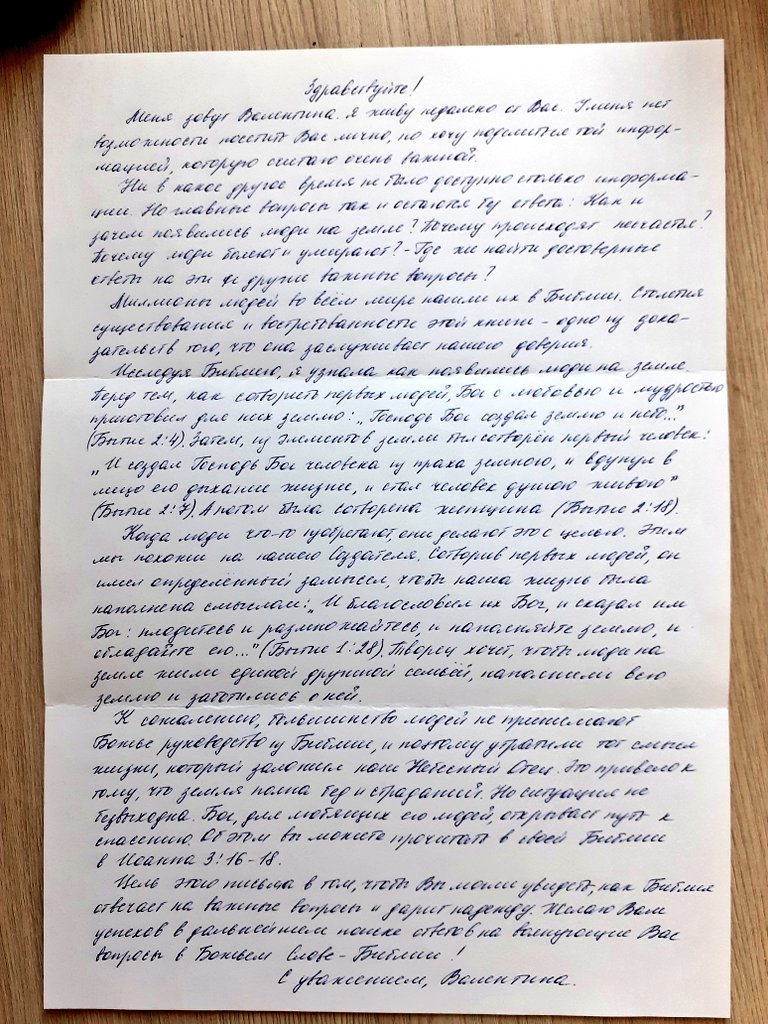 Здравствуйте!
Меня зовут Валентина. Я живу недалеко от Вас. У меня нет
возможности посетить Вас лично, но хочу поделиться той инфор-
мацией, которую считаю очень важной.
Ни в какое другое время не было доступно столько информа-
ции. Но главные вопросы так и остаются без ответа: Как и
зачем появились люди на земле? Почему происходят несчастья?
Почему люди болеют и умирают? - Где же найти достоверные
ответы на эти и другие важные вопросы?
Миллионы людей во всём мире нашли их в Библии. Столетия
существования и востребованности этой книги - одно из дока-
зательств того, что она заслуживает нашего доверия.
Исследуя Библию, я узнала как появились люди на земле.
Перед тем, как сотворить первых людей, Бог с любовью и мудростью
приготовил для них землю: „Господь Бог создал землю и небо..."
(Бытие 2:4). Затем, из элементов земли был сотворён первый человек:
„И создал Господь Бог человека из праха земного, и вдунул в
лицо его дыхание жизни, и стал человек душою живою"
(Бытие 2:7). А потом была сотворена женщина (Бытие 2:18).
Когда люди что-то изобретают, они делают это с целью. Этим
мы похожи на нашего Создателя. Сотворив первых людей, он
имел определённый замысел, чтобы наша жизнь была
наполнена смыслом: „И благословил их Бог, и сказал им
Бог: плодитесь и размножайтесь, и наполняйте землю, и
обладайте ею..." (Бытие 1:28). Творец хочет, чтобы люди на
земле жили единой дружной семьёй, наполнили всю
землю и заботились о ней.
К сожалению, большинство людей не принимают
Божье руководство из Библии, и поэтому утратили тот смысл
жизни, который заложил наш Небесный Отец. Это привело к
тому, что земля полна бед и страданий. Но ситуация не
безвыходна. Бог, для любящих его людей, открывает путь к
спасению. Об этом вы можете прочитать в своей Библии
в Иоанна 3:16-18.
Цель этого письма в том, чтобы Вы могли увидеть, как Библия
отвечает на важные вопросы и дарит надежду. Желаю Вам
успехов в дальнейшем поиске ответов на волнующие Вас
вопросы в Божьем Слове - Библии!
С уважением, Валентина.